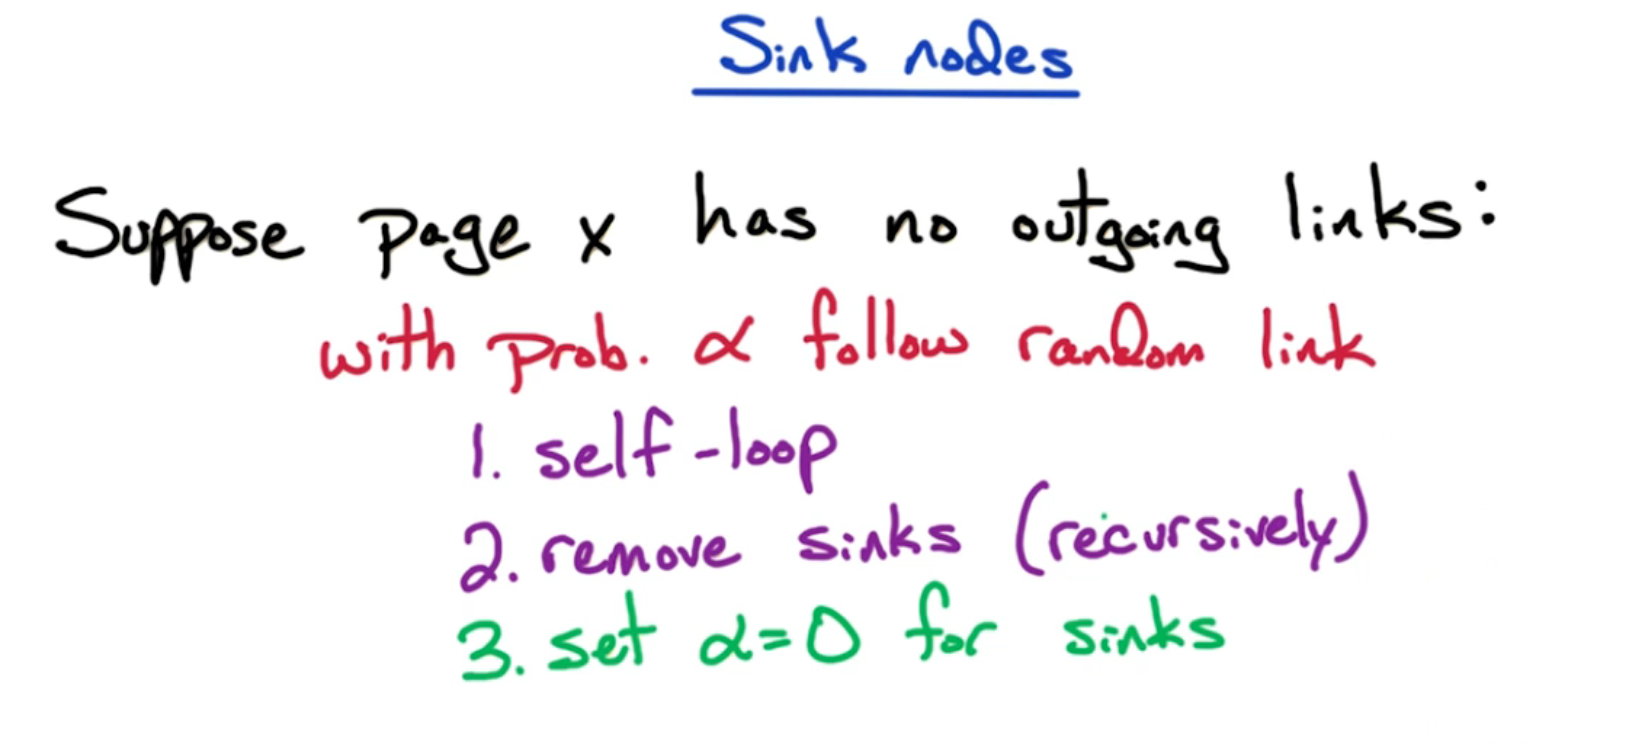 Sink nodes
Suppose page x has no outgoing links:
with prob. α follow random link
1. self-loop
2. remove sinks (recursively)
3. set α=0 for sinks